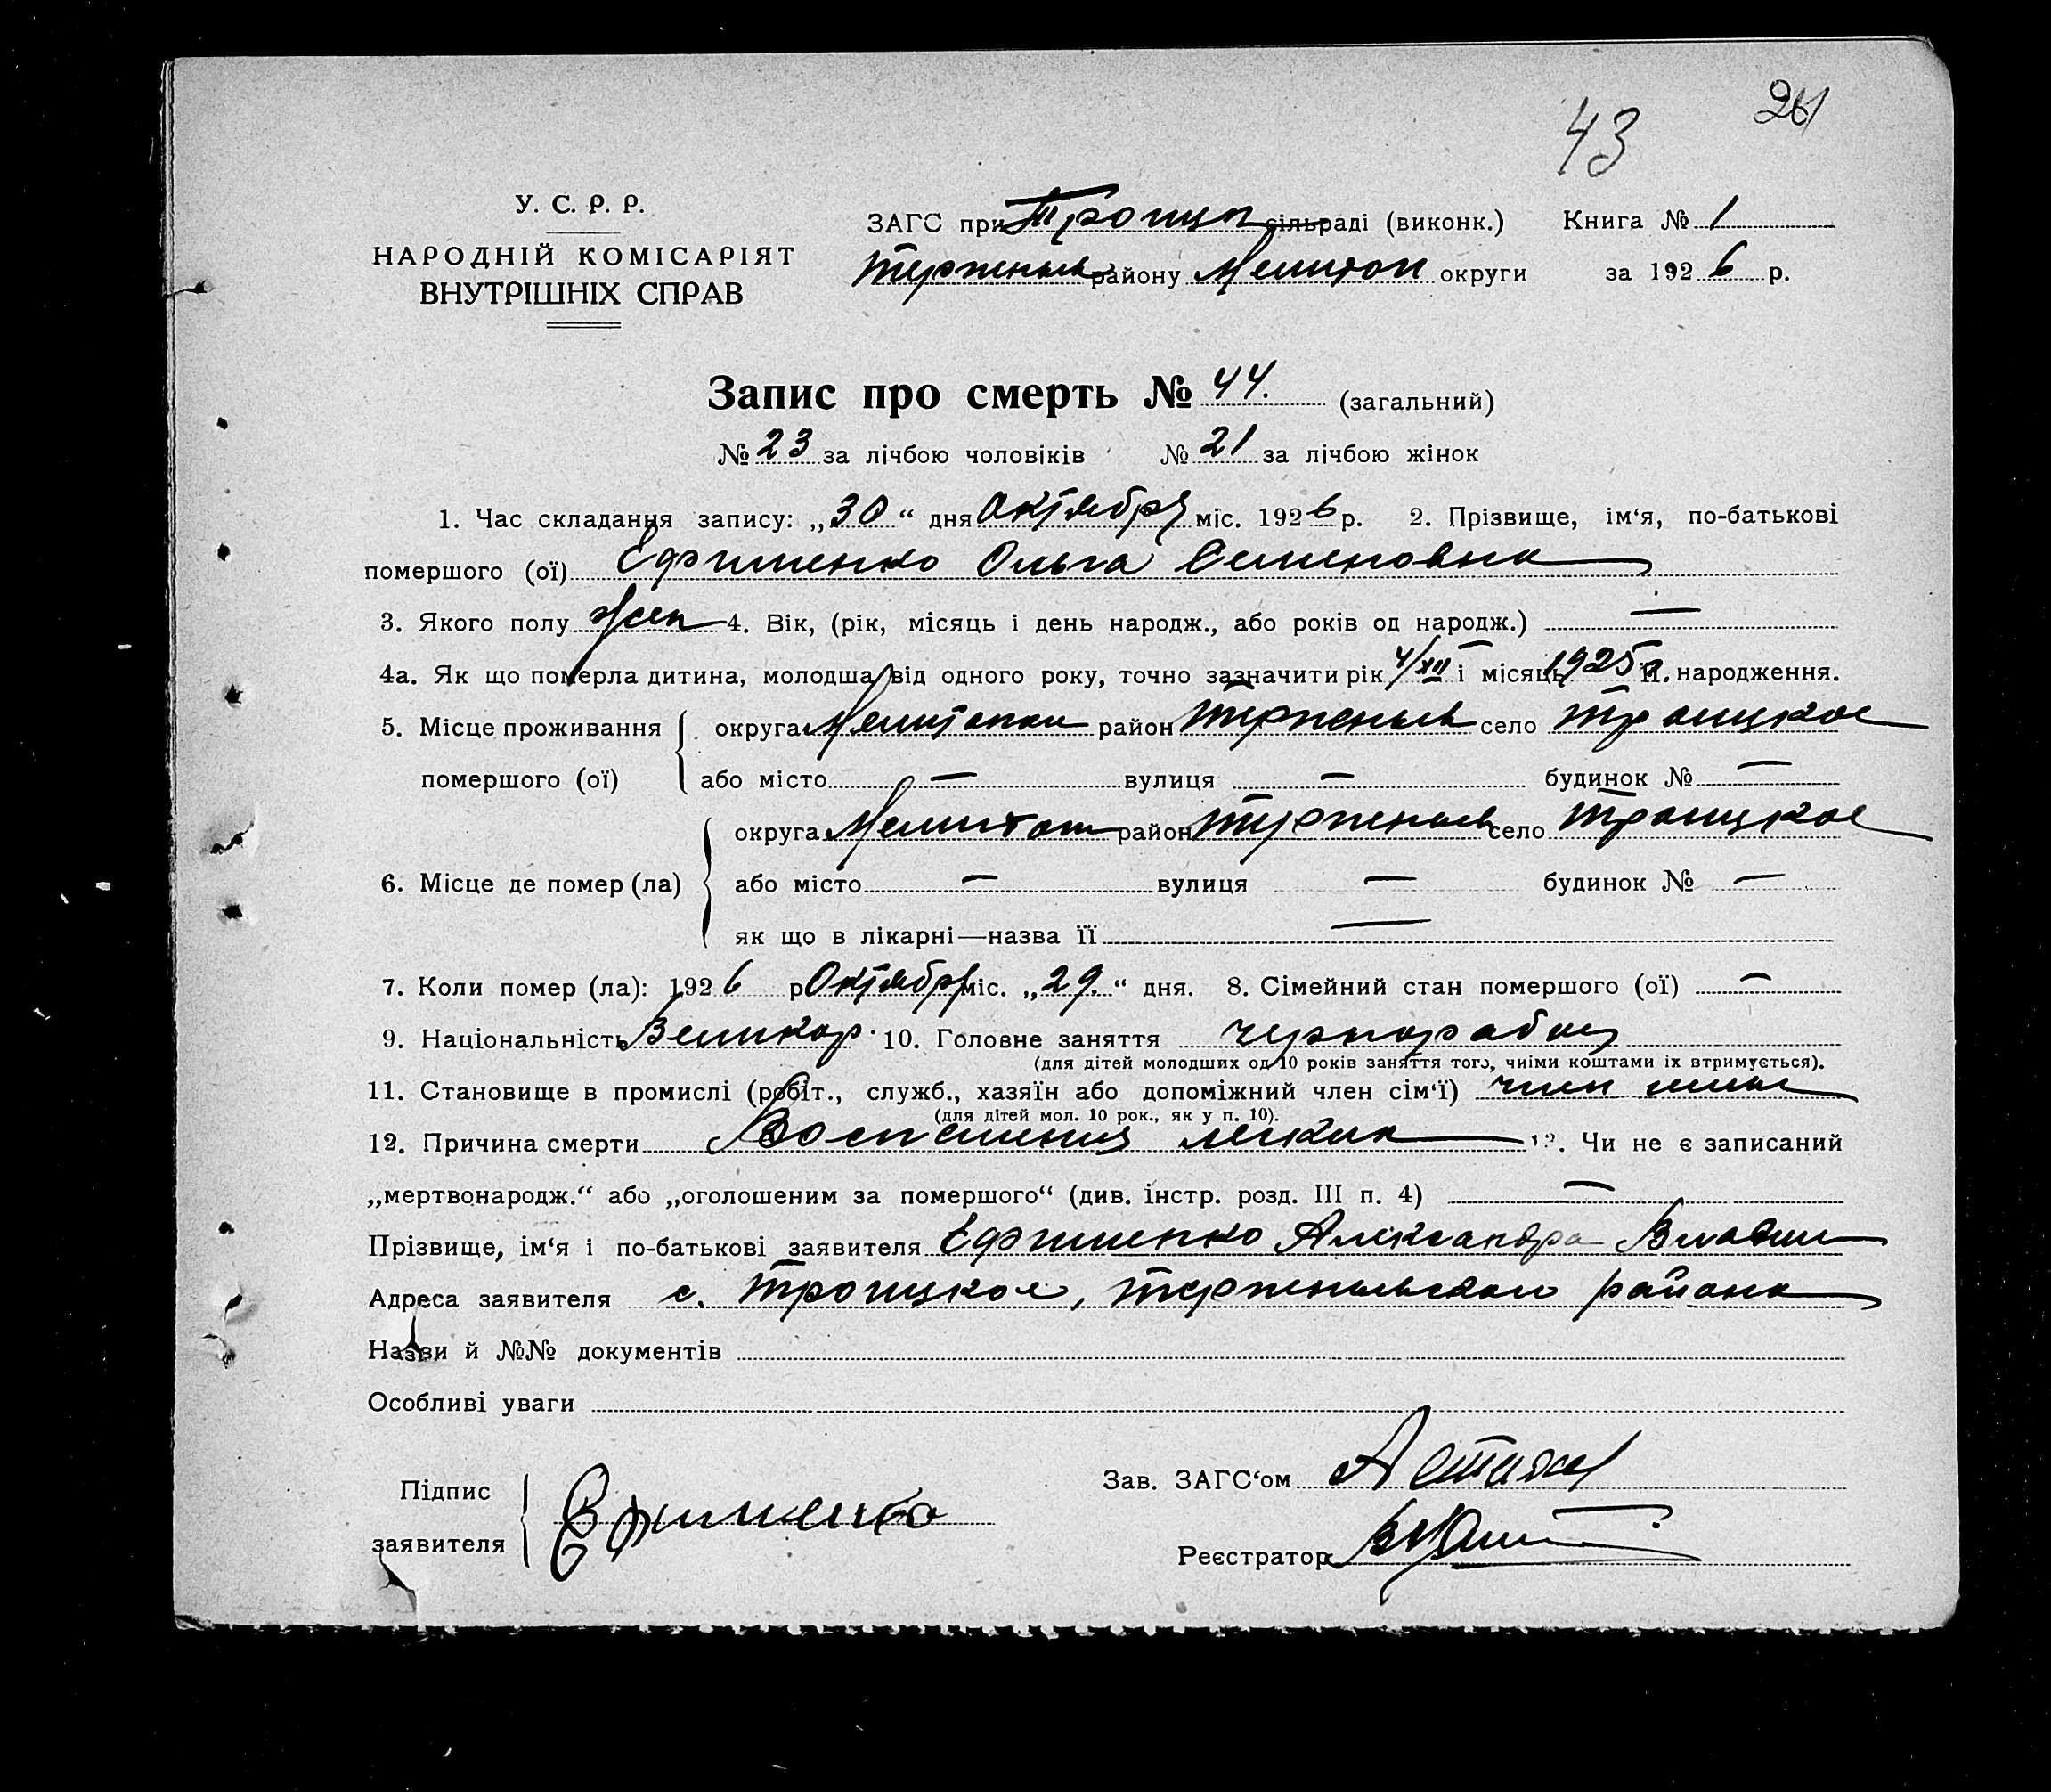 261
43
У. С. Р. Р.
НАРОДНІЙ КОМІСАРІЯТ
ВНУТРІШНІХ СПРАВ
ЗАГС при Троицк сільраді (виконк.) Книга № 1
Терпеньев району Мелитоп округи за 1926 р.
Запис про смерть № 44. (загальний)
№ 23 за лічбою чоловіків № 21 за лічбою жінок
1. Час складання запису: „30“ дня Октября міс. 1926 р. 2. Прізвище, ім‘я, по-батькові
помершого (ої) Ефименко Ольга Семеновна
3. Якого полу жен 4. Вік, (рік, місяць і день народж., або років од народж.) —
4а. Як що померла дитина, молодша від одного року, точно зазначити рік 4/XII і місяць 1925 г. її народження.
5. Місце проживання округа Мелитопол район Терпеньев село Троицкое
помершого (ої) або місто — вулиця — будинок № —
округа Мелитоп район Терпеньев село Троицкое
6. Місце де помер (ла) або місто — вулиця — будинок № —
як що в лікарні—назва її —
7. Коли помер (ла): 1926 р Октября міс. „29.“ дня. 8. Сімейний стан помершого (ої) —
9. Національність Великор. 10. Головне заняття чернорабоч
(для дітей молодших од 10 років заняття того, чиїми коштами їх втримується).
11. Становище в промислі (робіт., служб., хазяїн або допоміжний член сім‘ї) член семьи
(для дітей мол. 10 рок., як у п. 10).
12. Причина смерти Воспаления легких 13. Чи не є записаний
„мертвонародж.“ або „оголошеним за помершого“ (див. інстр. розд. III п. 4) —
Прізвище, ім‘я і по-батькові заявителя Ефименко Александра Владим
Адреса заявителя с. Троицкое, Терпеньевского района
Назви й №№ документів
Особливі уваги
Підпис
заявителя Ефименко
Зав. ЗАГС‘ом
Реєстратор